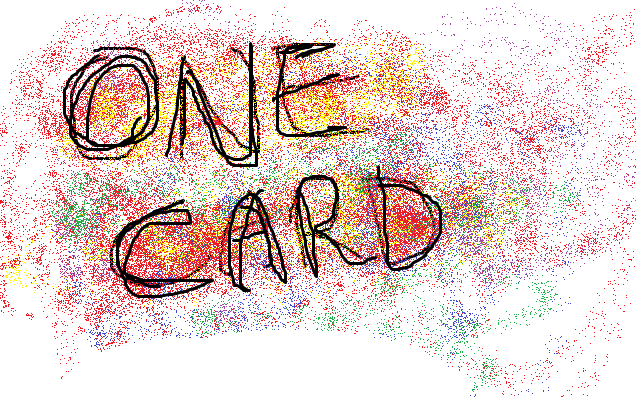 ONE
CARD